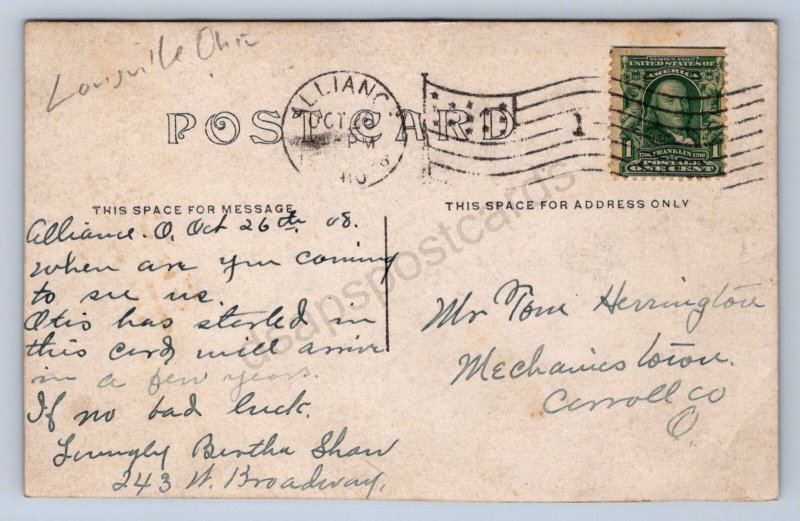 Louisville Ohio
ALLIANC
OCT 26
PM
SERIES 1902
UNITED STATES OF
AMERICA
1706. FRANKLIN 1790
POSTAGE
1 ONE CENT 1
1
POST CARD
THIS SPACE FOR MESSAGE
THIS SPACE FOR ADDRESS ONLY
Alliance. O. Oct 26th 08.
When are you coming
to see us.
Otis has started in
this card will arrive
in a few years.
If no bad luck.
Lovingly Bertha Shaw
243 W. Broadway.
Mr Tom Herrington
Mechanicstown.
Carroll Co
O.
asapspostcards